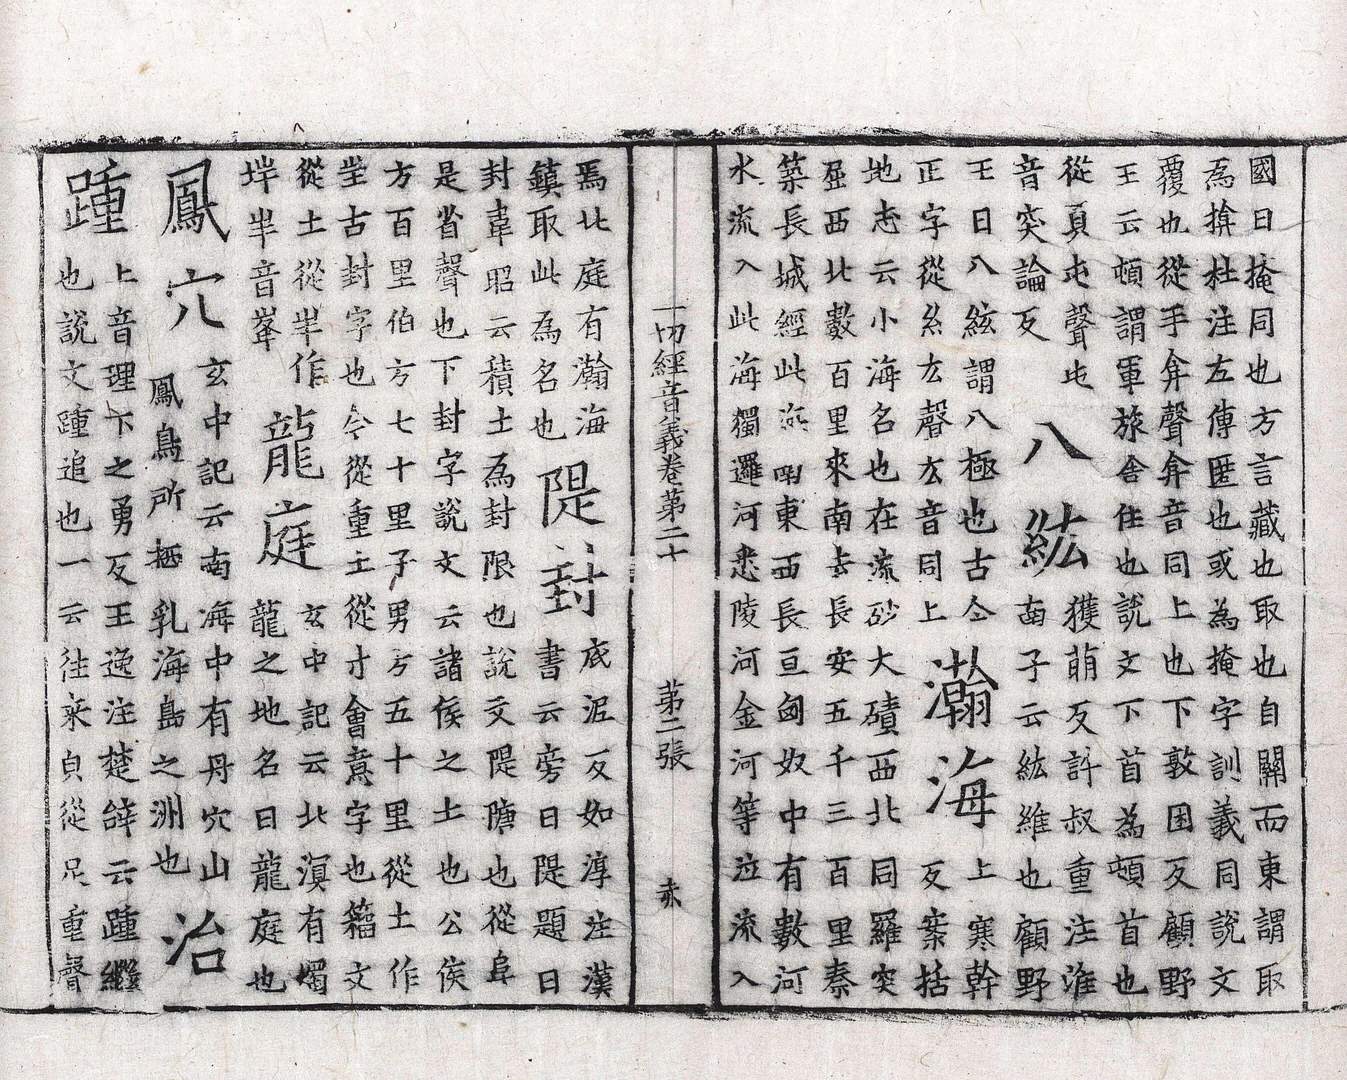 國曰掩同也方言藏也取也自關而東謂取
為揜杜注左傳匿也或為掩字訓義同說文
覆也從手弇聲弇音同上也下敦困反顧野
王云頓謂軍旅舍住也說文下首為頓首也
從頁屯聲屯
音突論反
八紘
獲萌反許叔重注淮
南子云紘維也顧野
王曰八紘謂八極也古今
正字從糸厷聲厷音同上
瀚海
上寒幹
反案括
地志云小海名也在流砂大磧西北同羅突
屈西北數百里來南去長安五千三百里秦
築長城經此海南東西長亘匈奴中有數河
水流入此海獨邏河悉陵河金河等並流入
一切經音義卷第二十 第二張
焉北庭有瀚海
鎮取此為名也
隄封
底泥反如淳注漢
書云旁曰隄題曰
封韋昭云積土為封限也說文隄隯也從阜
是省聲也下封字說文云諸侯之土也公侯
方百里伯方七十里子男方五十里從土作
坓古封字也今從重土從寸會意字也籀文
從土從丰作
垟半音峯
龍庭
玄中記云北溟有燭
龍之地名曰龍庭也
鳳穴
玄中記云南海中有丹穴山
鳳鳥所栖乳海島之洲也
治
踵
上音理下之勇反王逸注楚辭云踵繼
也說文踵追也一云往來皃從足重聲